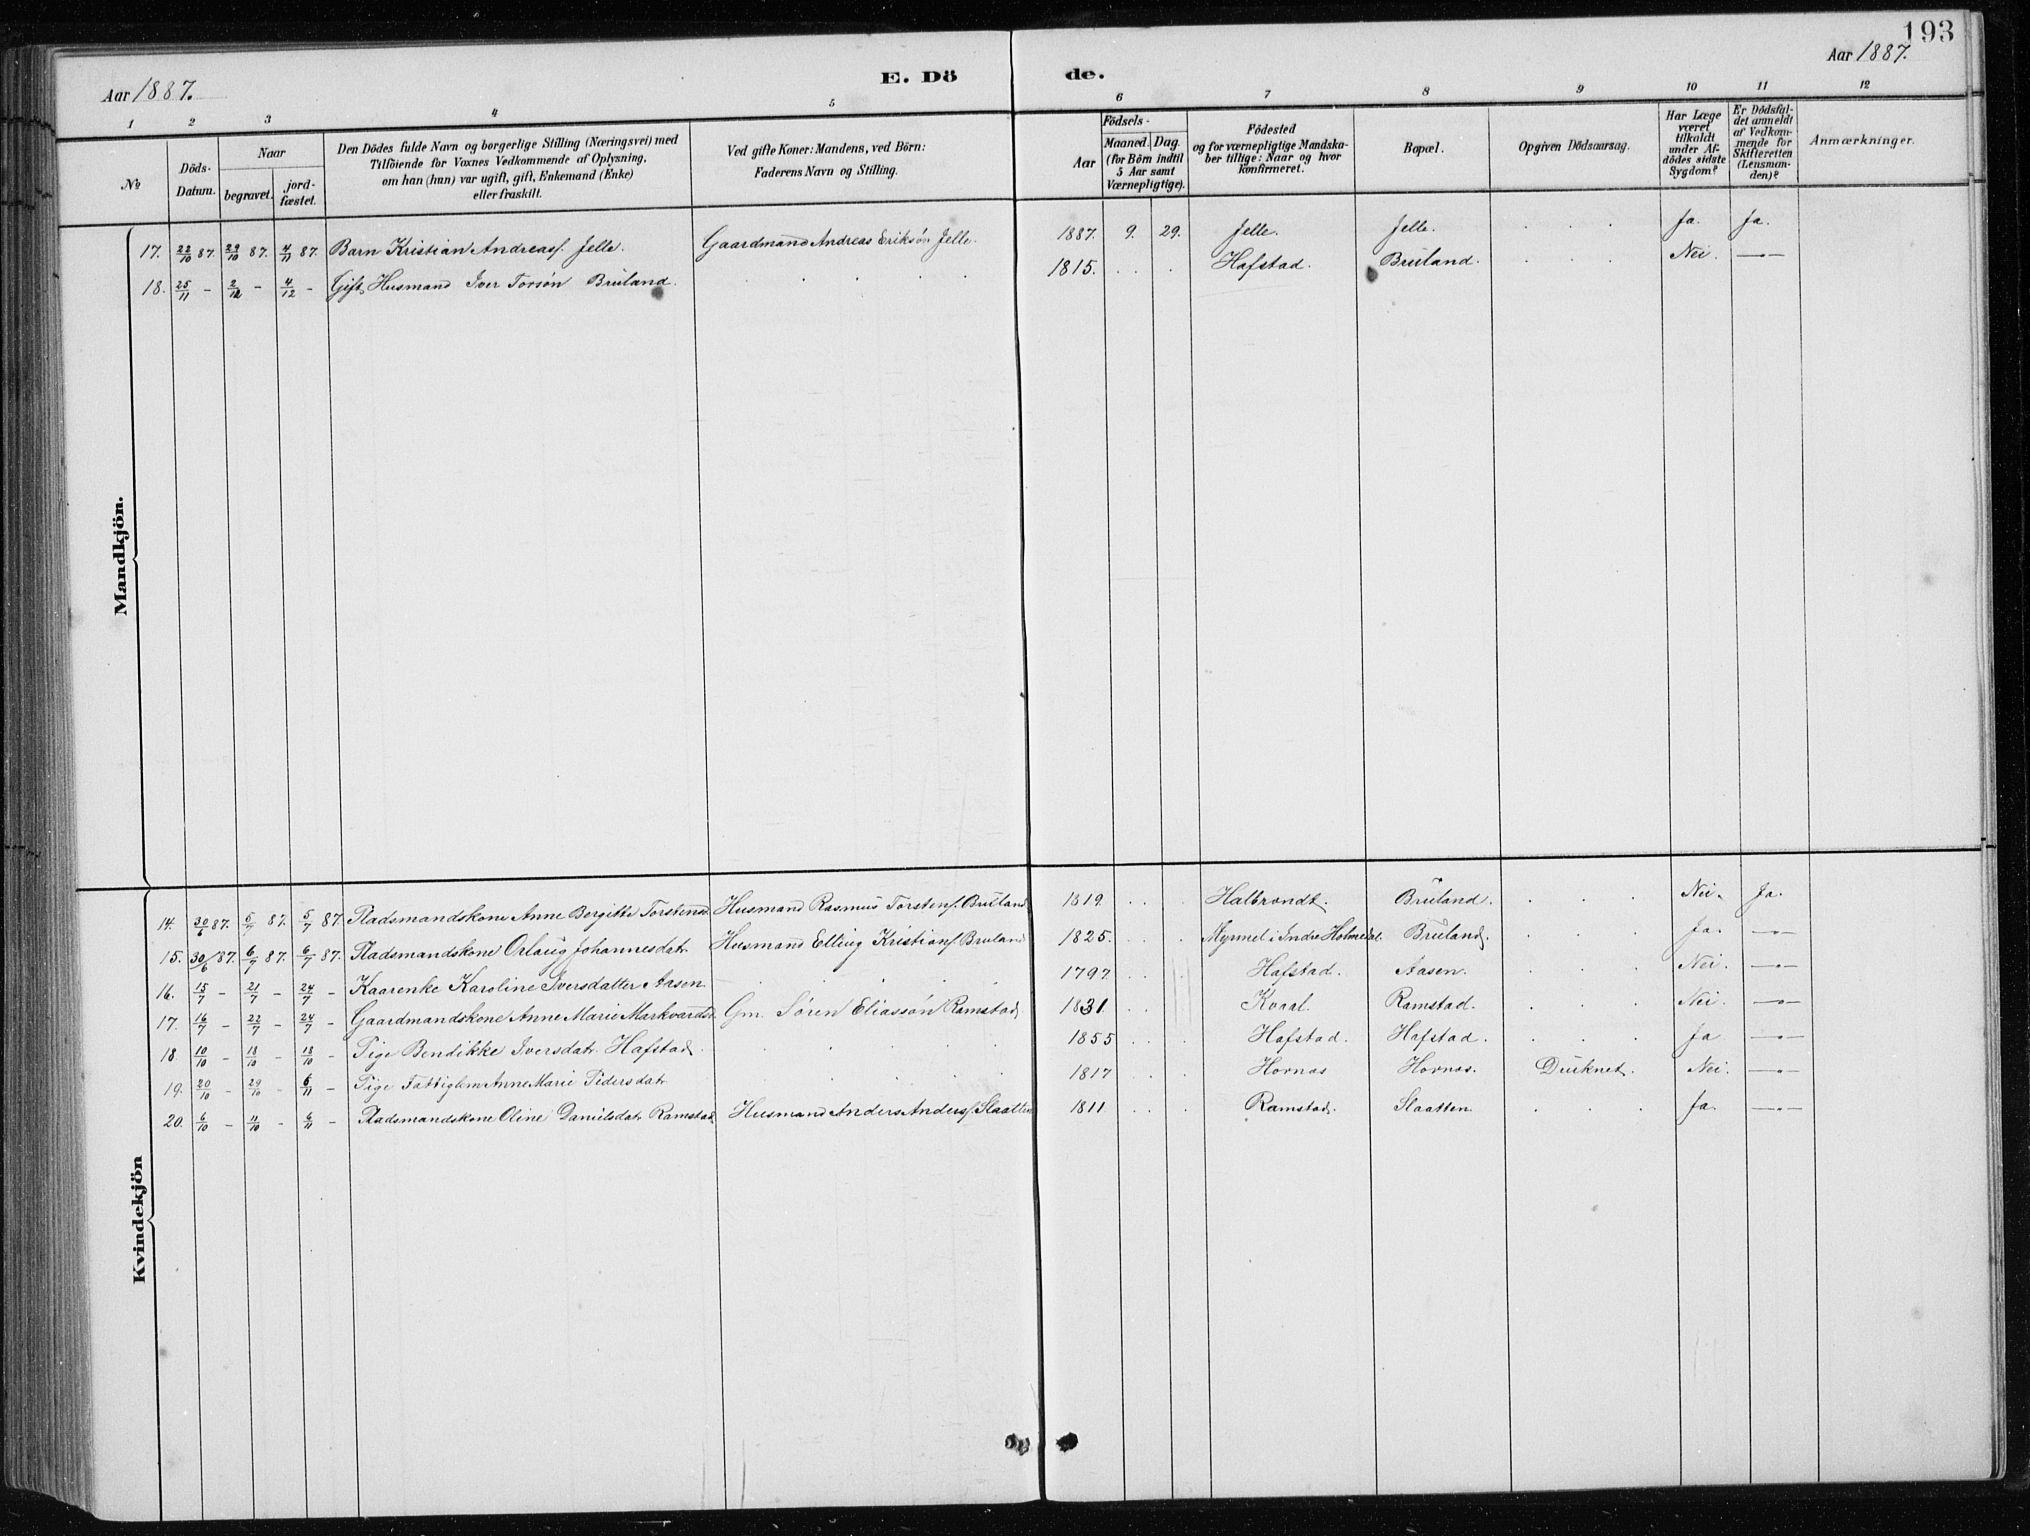 193
Aar 1887.
E. Dö
de.
Aar 1887.
1 2 3 4 5 6 7 8 9 10 11 12
№
Döds-
Datum.
Naar
begravet.
jord-
fæstet.
Den Dödes fulde Navn og borgerlige Stilling (Næringsvei) med
Tilföiende for Voxnes Vedkommende af Oplysning,
om han (hun) var ugift, gift, Enkemand (Enke)
eller fraskilt.
Ved gifte Koner: Mandens, ved Börn:
Faderens Navn og Stilling.
Födsels-
Aar
Maaned.
Dag.
(for Börn indtil
5 Aar samt
Værnepligtige).
Födested
og for værnepligtige Mandska-
ber tillige: Naar og hvor
konfirmeret.
Bopæl.
Opgiven Dödsaarsag.
Har Læge
været
tilkaldt
under Af-
dödes sidste
Sygdom?
Er Dödsfal-
det anmeldt
af Vedkom-
mende for
Skifteretten
(Lensman-
den)?
Anmærkninger.
Mandkjön.
17. 22/10 87. 29/10 87. 4/11 87. Barn Kristian Andreasf. Jelle. Gaardmand Andreas Eriksön Jelle. 1887. 9. 29. Jelle. Jelle. . . . Ja. Ja.
18. 25/11 - 2/12 - 4/12 - Gift Husmand Iver Torsön Bruland. . . . . 1815. . . . Hafstad. Bruland. . . . Nei. —"—
Kvindekjön
14. 30/6 87. 5/7 87. 5/7 87. Pladsmandskone Anne Bergitte Torstensd. Husmand Rasmus Torstenf. Bruland 1819. . . . Halbrendt. Bruland. . . . Nei. Ja.
15. 30/6 87. 6/7 87. 6/7 87. Pladsmandskone Orlaug Johannesdatr Husmand Elling Kristianf. Bruland 1825. . . . Myrmel i Indre Holmedal. Bruland. . . . Ja. —"—
16. 15/7 - 21/7 - 24/7 - Kaarenke Karoline Iversdatter Aasen . . . . 1797. . . . Hafstad. Aasen. . . . Nei. —"—
17. 16/7 - 22/7 - 24/7 - Gaardmandskone Anne Marie Markvardsd. Gm. Sören Eliassön Ramstad. 1831. . . . Kvaal. Ramstad. . . . Nei. —"—
18 10/10 - 18/10 - 18/10 - Pige Bendikke Iversdatr. Hafstad. . . . . 1855 . . . Hafstad. Hafstad. . . . Ja —"—
19. 20/10 - 29/10 - 6/11 - Pige Fattiglem Anne Marie Pedersdatr . . . . 1817 . . . Hornas Hornas. Druknet. Nei. —"—
20. 6/10 - 11/10 - 6/11 - Pladsmandskone Oline Danielsdatr Ramstad Husmand Anders Andersf. Slaatten 1811 . . . Ramstad. Slaatten. . . . Ja. —"—